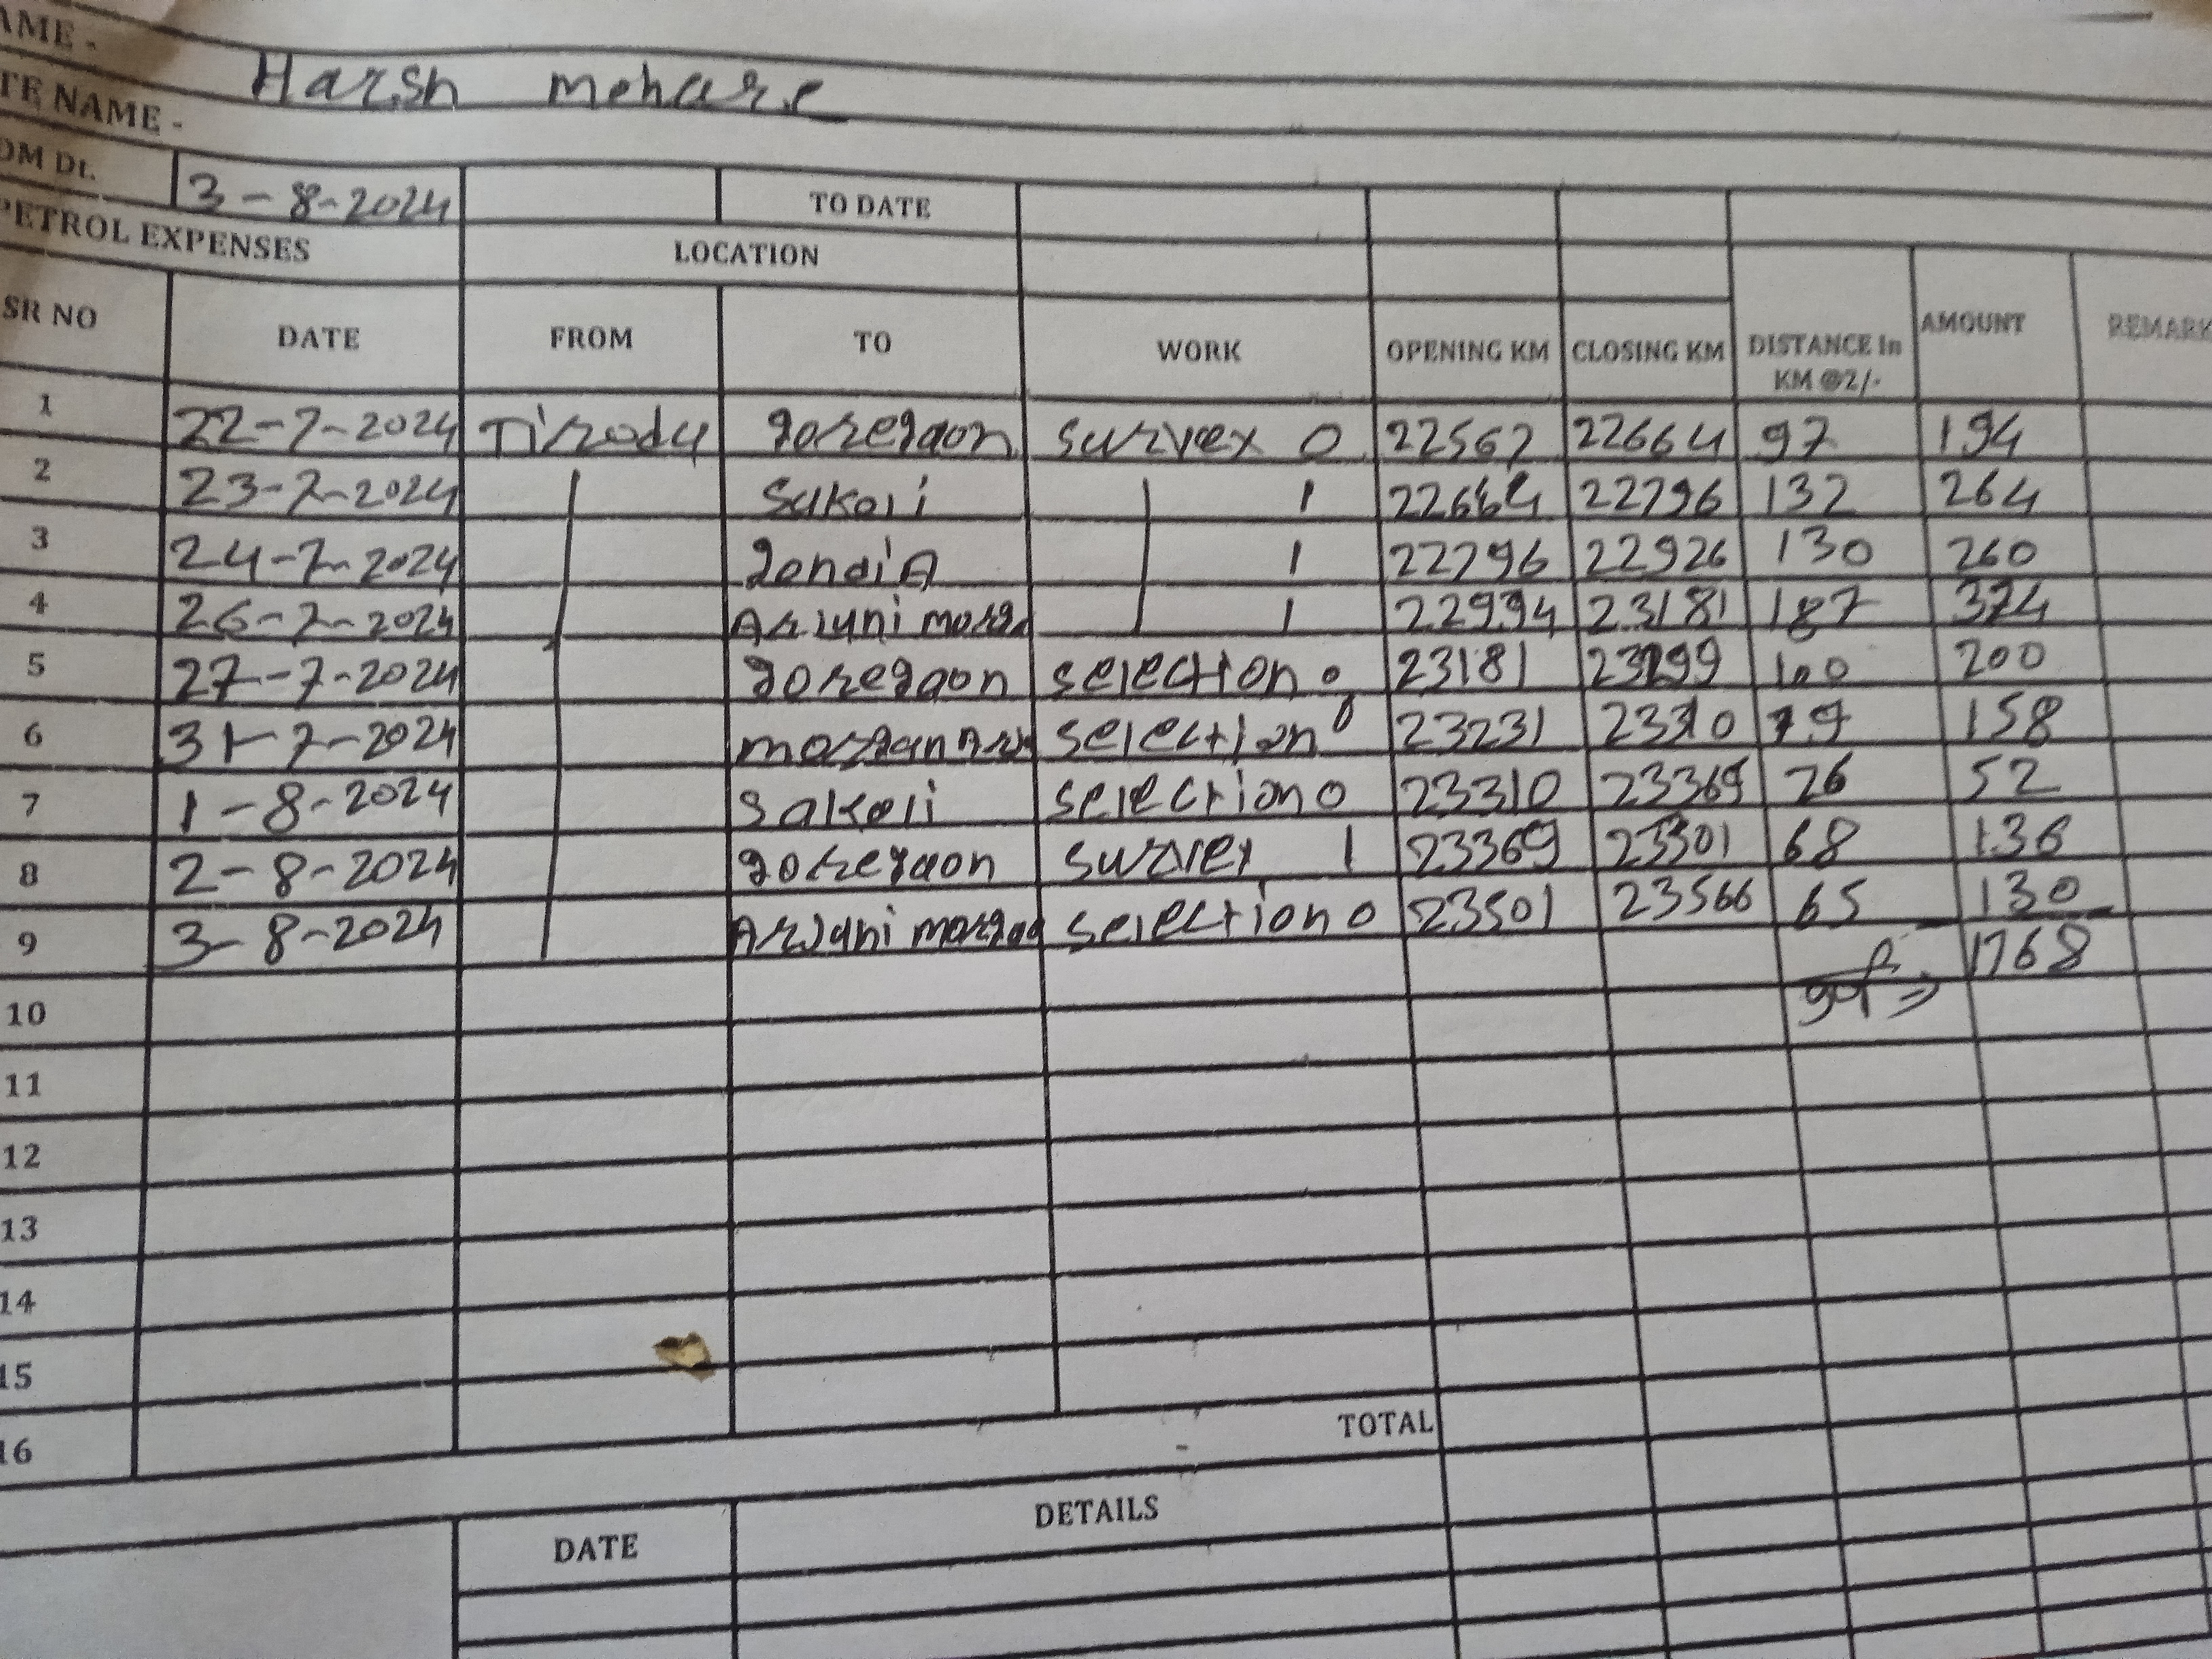 AME -
Harsh mohare
TE NAME -
OM Dt. 3-8-2024 TO DATE
PETROL EXPENSES LOCATION
SR NO DATE FROM TO WORK OPENING KM CLOSING KM DISTANCE In KM @2/- AMOUNT REMARK
1 22-7-2024 Tirody goregaon survex 0 22567 22664 97 194
2 23-7-2024 Sakoli 1 22664 22796 132 264
3 24-7-2024 gondia 1 22796 22926 130 260
4 26-7-2024 Arjuni morga 1 22994 23181 187 374
5 27-7-2024 goregaon selection 0 23181 100 200
6 31-7-2024 selection 0 23231 2310 79 158
7 1-8-2024 Sakoli selection 0 23310 23369 26 52
8 2-8-2024 goregaon survex 1 23369 68 136
9 3-8-2024 Arjuni selection 0 23501 23566 65 130
1768
10
11
12
13
14
15
16
TOTAL
DATE DETAILS